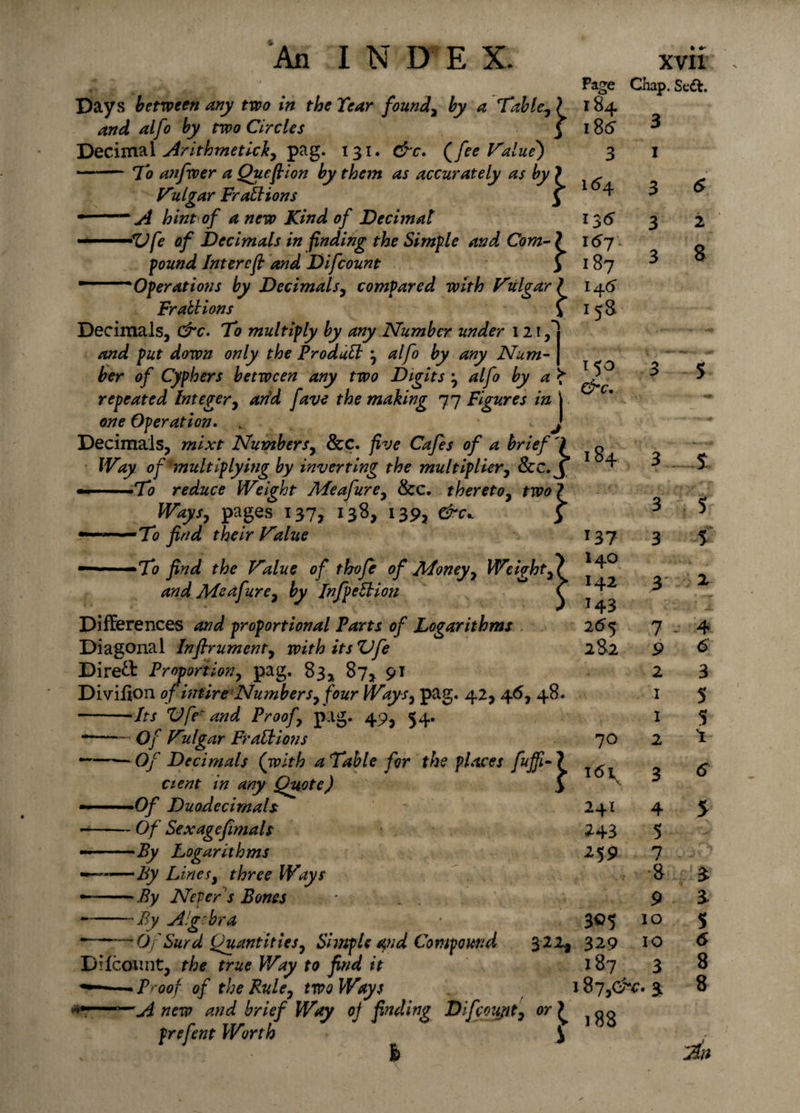 An INDEX. xvii
Page Chap. Sect.
Days between any two in the Year found, by a Table, } 184
and also by two Circles } 186 3
Decimal Arithmetick, pag. 131. &c. (see Value) 3 1
—— To answer a Question by them as accurately as by }
Vulgar Fractions } 164 3 6
—— A hint of a new Kind of Decimal 136 3 2
——Use of Decimals in finding the Simple and Com- } 167
pound Interest and Discount } 187 3 8
——Operations by Decimals, compared with Vulgar } 146
Fractions } 158
Decimals, &c. To multiply by any Number under 121, }
and put down only the Product ; also by any Num-
ber of Cyphers between any two Digits ; also by a } 150 3 5
repeated Integer, and save the making 77 Figures in &c.
one Operation. }
Decimals, mixt Numbers, &c. five Cases of a brief }
Way of multiplying by inverting the multiplier, &c. } 184 3 5
——To reduce Weight Measure, &c. thereto, two }
Ways, pages 137, 138, 139, &c. } 3 5
——To find their Value 137 3 5
——To find the Value of those of Money, Weight, } 140
and Measure, by Inspection } 142 3 2
143
Differences and proportional Parts of Logarithms 265 7 4
Diagonal Instrument, with its Use 282 9 6
Direct Proportion, pag. 83, 87, 91 2 3
Division of intire Numbers, four Ways, pag. 42, 46, 48. 1 5
——Its Use and Proof, pag. 49, 54. 1 5
—— Of Vulgar Fractions 70 2 1
—— Of Decimals (with a Table for the places suffi- }
cient in any Quote) } 161 3 6
——Of Duodecimals 241 4 5
—— Of Sexagesimals 243 5
——By Logarithms 259 7
——By Lines, three Ways 8 3
——By Neper's Bones 9 3
——By Algebra 305 10 5
——Of Surd Quantities, Simple and Compound 322, 329 10 6
Discount, the true Way to find it 187 3 8
——Proof of the Rule, two Ways 187,&c. 3 8
——A new and brief Way of finding Discount, or }
present Worth } 188
b An